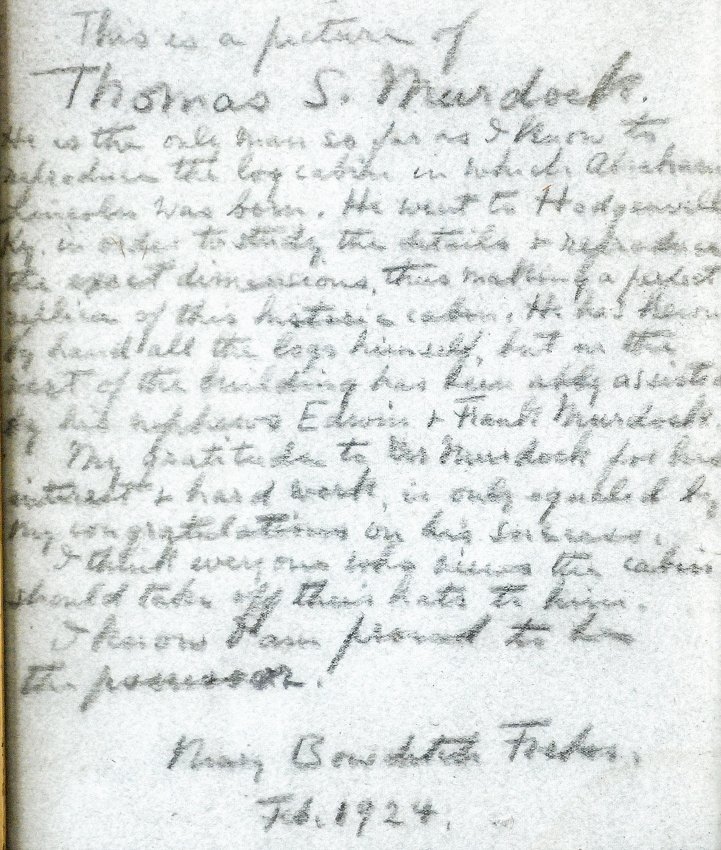 This is a picture of
Thomas S. Murdock.
He is the only man so far as I know to
reproduce the log cabin in which Abraham
Lincoln was born. He went to Hodgenville
Ky. in order to study the details & reproduce
the exact dimensions, thus making a perfect
replica of this historic cabin. He has hewn
by hand all the logs himself, but in the
rest of the building has been ably assisted
by his nephews Edwin & Frank Murdock.
My gratitude to Mr Murdock for his
interest & hard work, is only equaled by
my congratulations on his success.
I think everyone who views the cabin
should take off their hats to him.
I know I am proud to be
the possessor.
Mary Bowditch Forbes.
Feb. 1924.